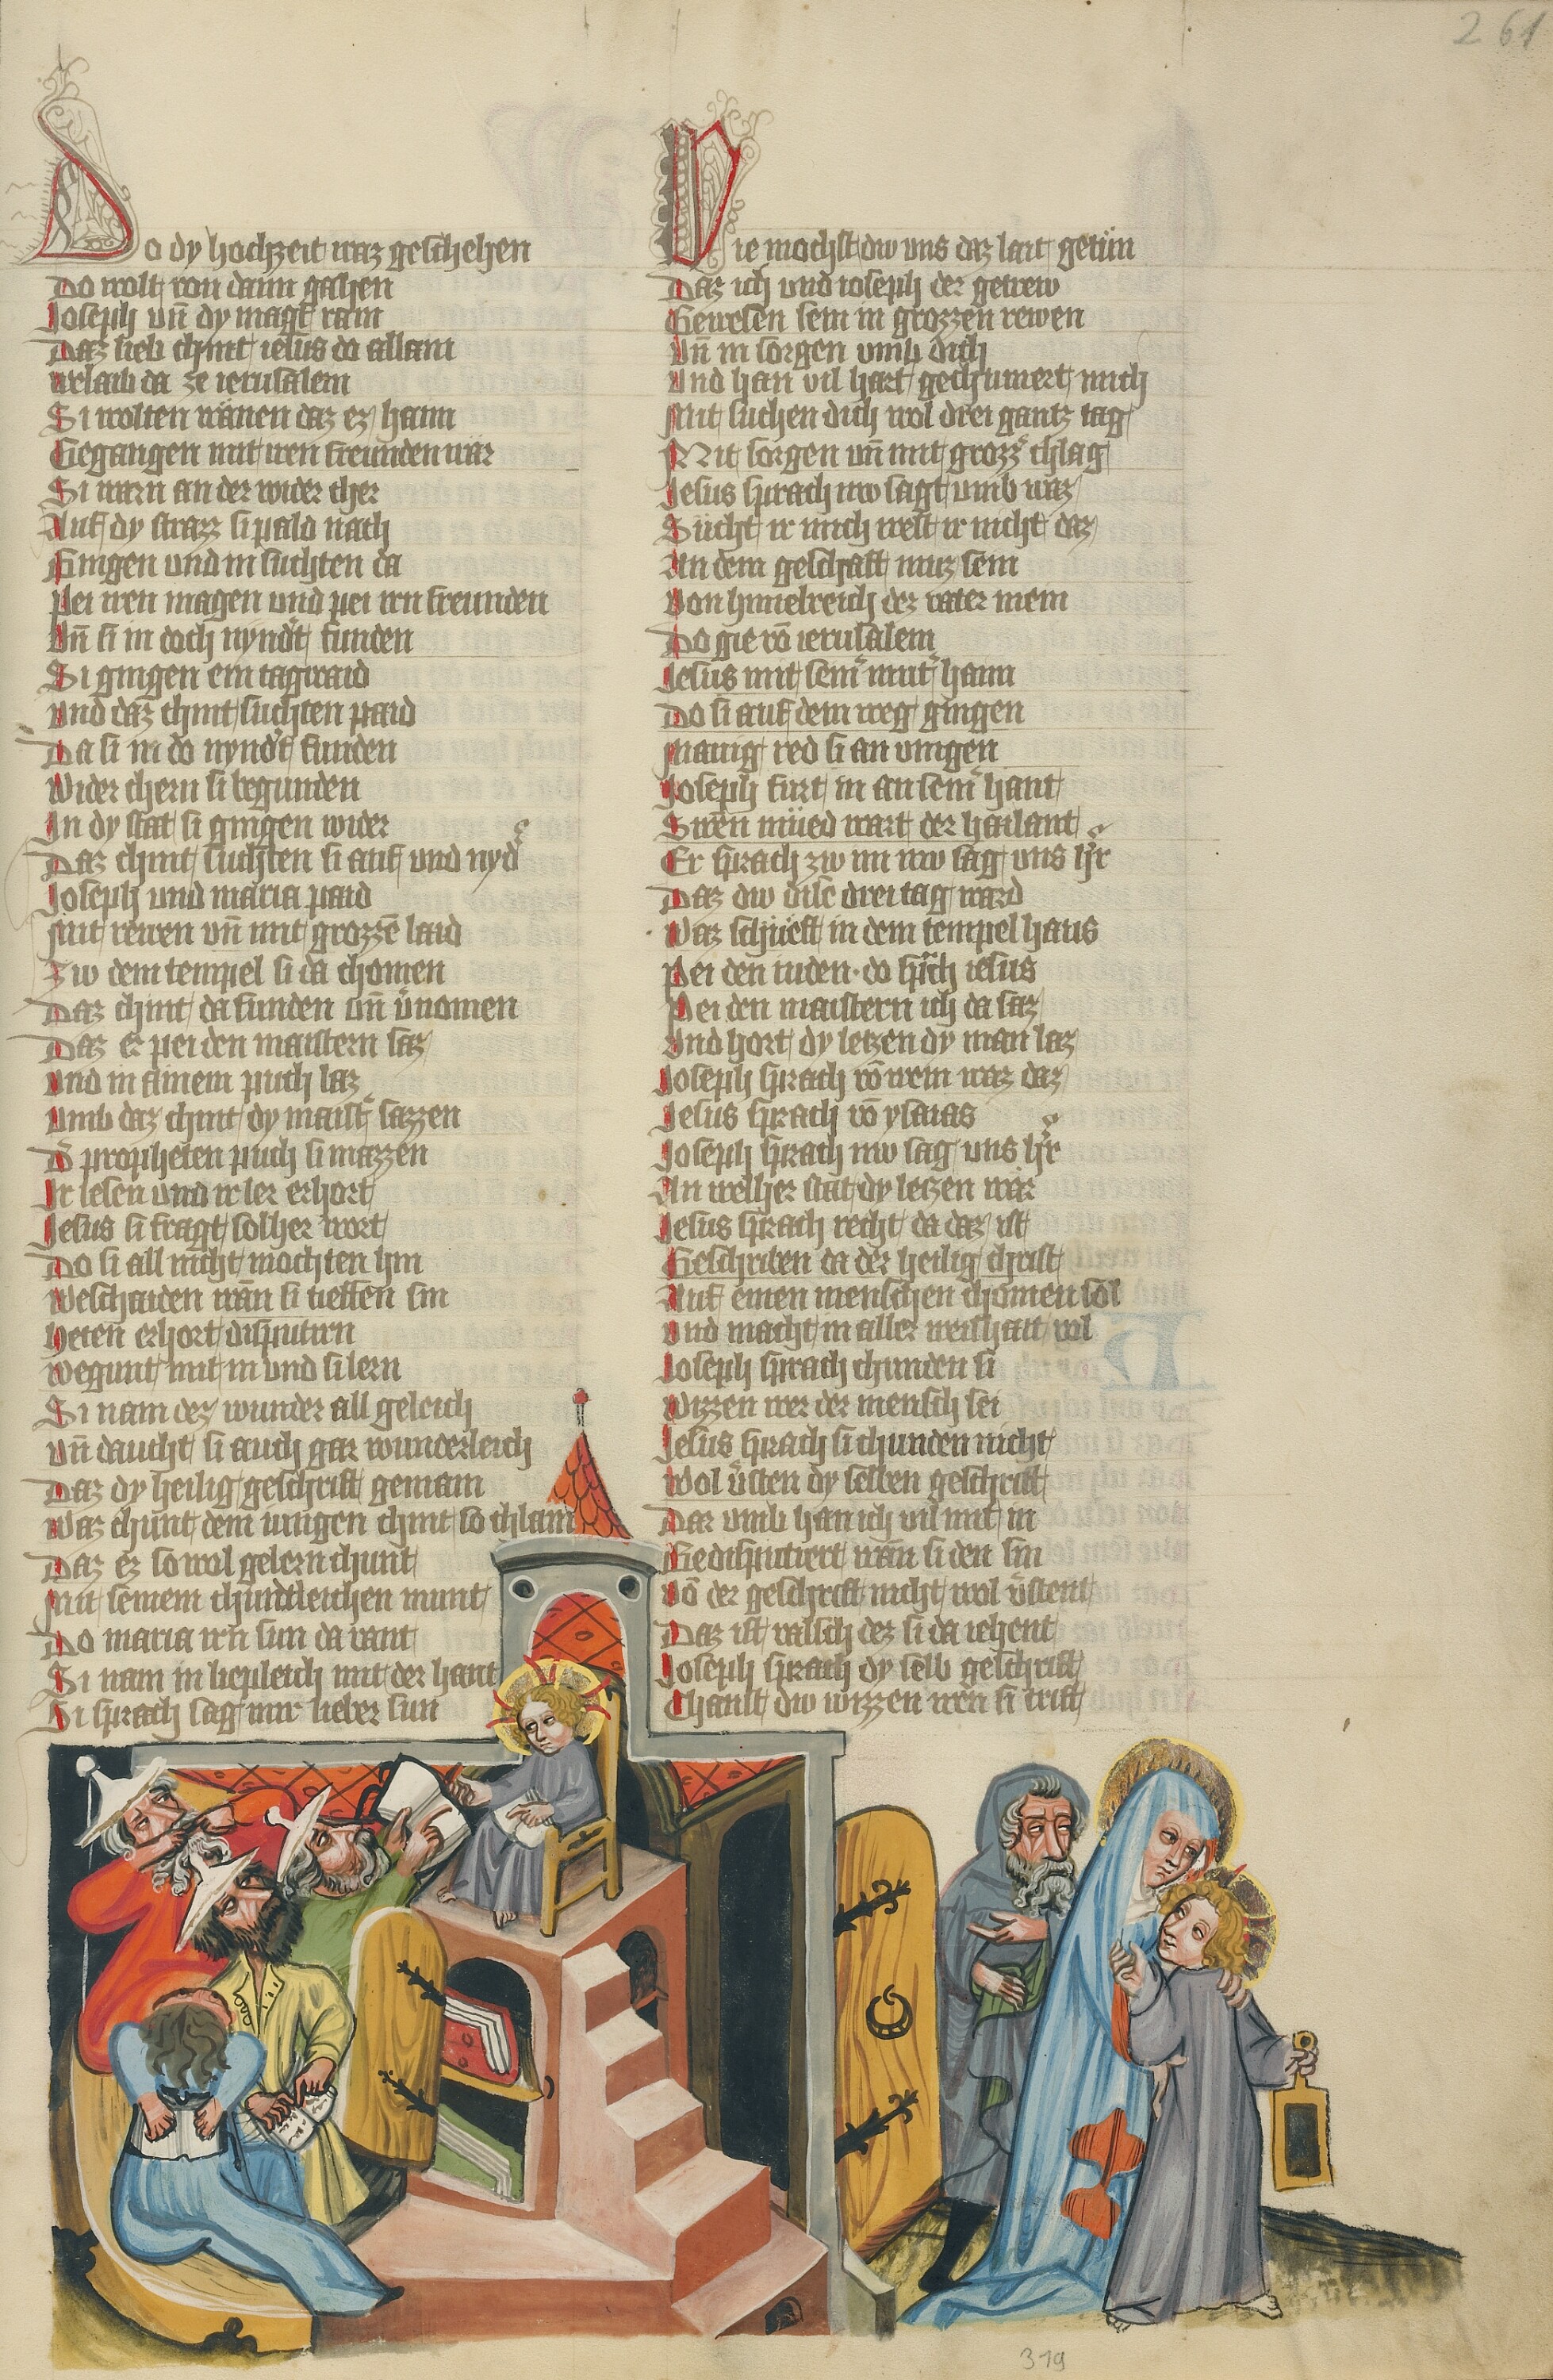 261
Do dy hochzeit waz geschehen
Do wolt von dann gahen
Joseph vn̄ dy magt rain
Daz lieb chint iesus do allain
Welaib da ze ierusalem
Si wolten wänen daz ez haim
Gegangen mit iren freunden wär
Si warn an der wider cher
Auf dy strazz si pald nach
Gingen und in suchten da
Pei iren magen und pei irn freunden
Vn̄ si in doch nyndt funden
Si gingen ein tagwaid
Und daz chint suchten paid
Da si in do nyndt funden
Wider chern si begunden
In dy stat si gingen wider
Daz chint suchten si auf und nyd
Joseph und maria paid
Mit rewen vn̄ mit grozzē laid
Zw dem tempel si da chomen
Daz chint da funden vn̄ v̄nomen
Daz er pei den maistern saz
Und in ainem puch laz
Umb daz chint dy maist sazzen
D propheten puch si mazzen
Ir lesen und ir ler erhort
Jesus si fragt solher wort
Do si all nicht mochten hin
Beschaiden wan̄ si tieffen sin
Heten erhort disputirn
Wegunt mit in und si lern
Si nam dez wunder all geleich
Vn̄ daucht si auch gar wunderleich
Daz dy heilig geschrift gemain
Waz chunt dem iungen chint so chlain
Daz ez so wol gelern chunt
Mit seinem chundleichen munt
Do maria irn sun da vant
Si nam in liepleich mit der hant
Si sprach sag mir lieber sun
Wie mochst dw uns daz lait getün
Daz ich und ioseph der getrew
Gewesen sein in grozzen rewen
Vn̄ in sorgen umb dich
Und han vil hart gechumert mich
Mit suchen dich wol drei gantz tag
Mit sorgen vn̄ mit grozz chlag
Jesus sprach nw sagt umb waz
Sücht ir mich west ir nicht daz
An dem geschaft muz sein
Von himelreich dez vater mein
Do gie vō ierusalem
Jesus mit sein mut haim
Do si auf dem weg gingen
Manig red si an vingen
Joseph furt in an sein hant
Swen müed wart der hailant
Er sprach zw im nw sag uns hr
Daz dw dise drei tag ward
Waz schüeft in dem tempel haus
Pei den iuden do sprach iesus
Pei den maistern ich da saz
Und hort dy letzen dy man laz
Joseph sprach vō wem waz daz
Jesus sprach vō ysaias
Joseph sprach nw sag uns hr
An welher stat dy letzen wär
Jesus sprach recht da daz ist
Geschriben da der heilig christ
Auf einen menschen chomen sol
Und macht in aller weishait vol
Joseph sprach chunden si
Wizzen wer der mensch sei
Jesus sprach si chunden nicht
Wol v̄sten dy selben geschrift
Dar umb han ich vil mit in
Gedisputiert wan̄ si den sin
Vō der geschrift nicht wol v̄stent
Daz ist valsch dez si da iehent
Joseph sprach dy selb geschrift
Chanst dw wizzen wen si trift
319